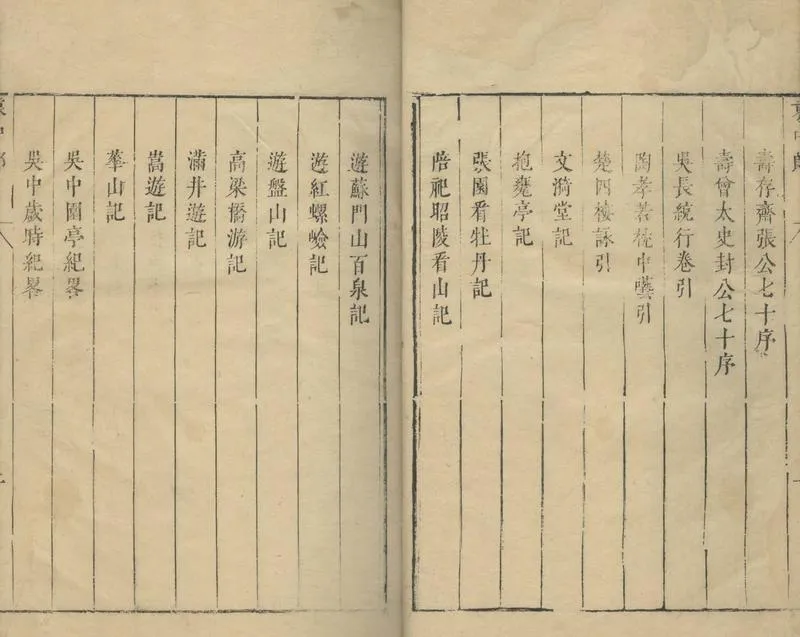 壽存齋張公七十序
壽曾太史封公七十序
吳長統行卷引
陶孝若枕中囈引
楚四樓詠引
文漪堂記
抱甕亭記
張園看牡丹記
陪祀昭陵看山記
遊蘇門山百泉記
遊紅螺嶮記
遊盤山記
高梁橋游記
滿井遊記
嵩遊記
華山記
吳中園亭紀畧
吳中歲時紀畧